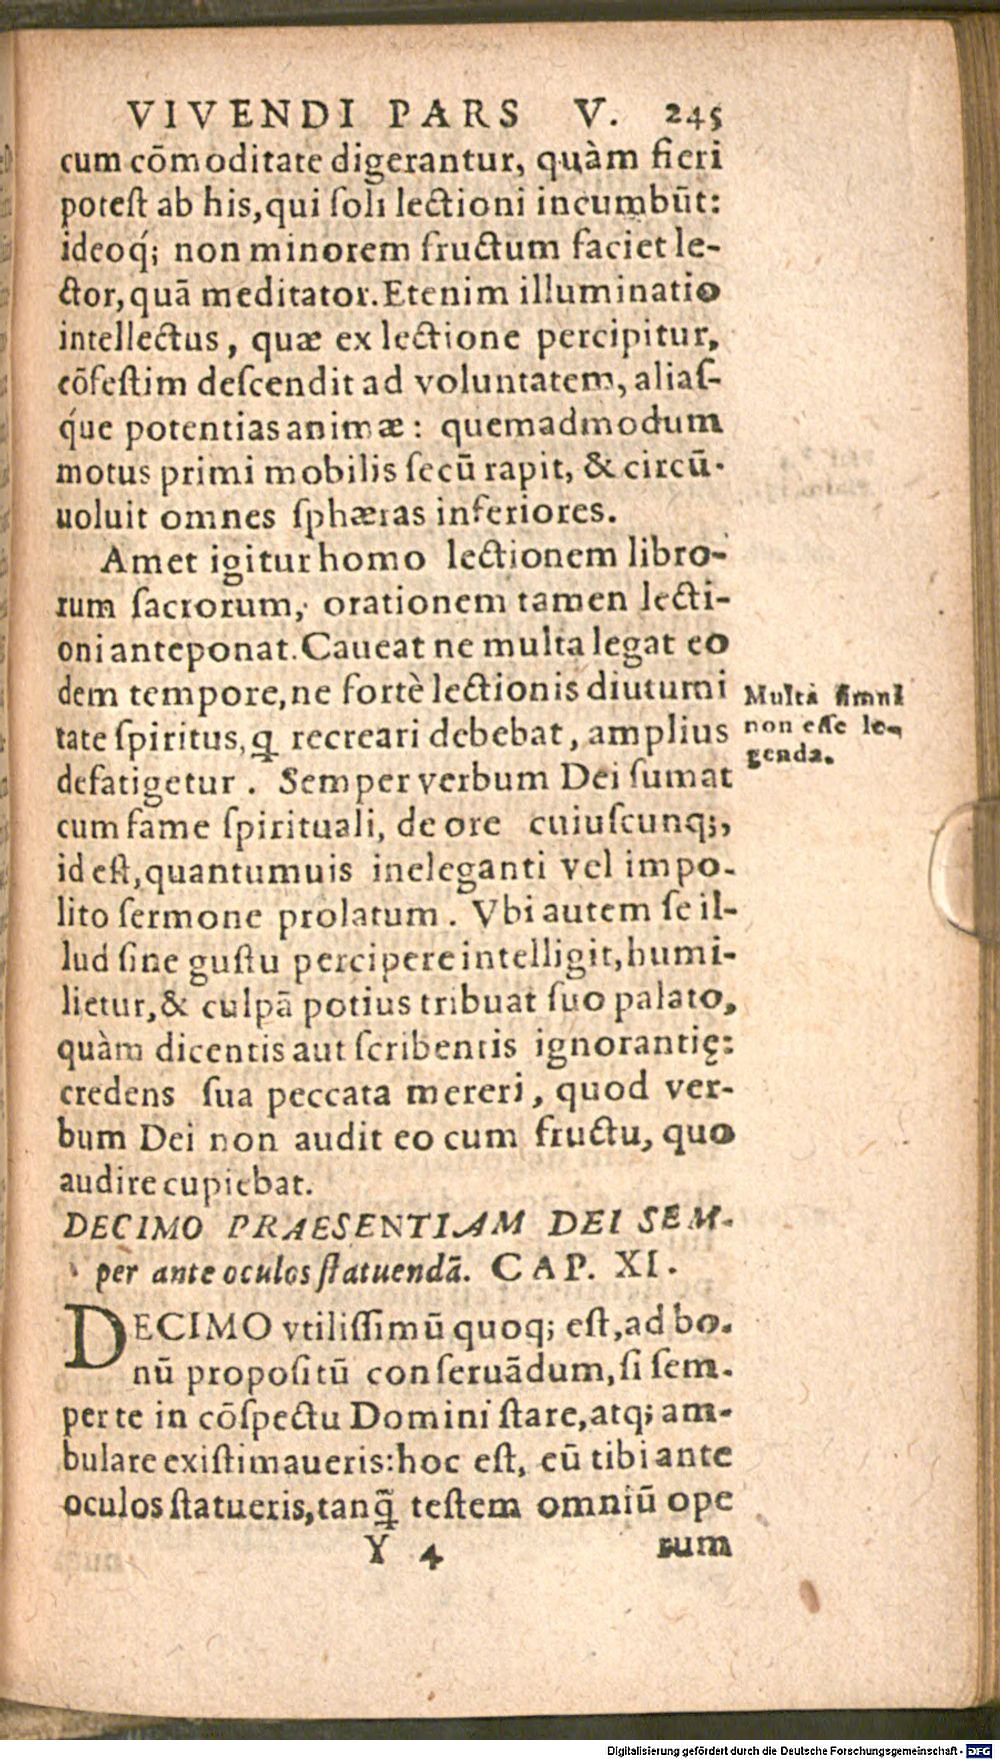 VIVENDI PARS V. 245
cum cōmoditate digerantur, quàm fieri
poteſt ab his, qui ſoli lectioni incumbūt:
ideoq́; non minorem fructum faciet le-
ctor, quā meditator. Etenim illuminatio
intellectus, quæ ex lectione percipitur,
cōfeſtim deſcendit ad voluntatem, aliaſ-
q́ue potentias animæ: quemadmodum
motus primi mobilis ſecū rapit, & circū-
uoluit omnes ſphæras inferiores.
Amet igitur homo lectionem libro-
rum ſacrorum, orationem tamen lecti-
oni anteponat. Caueat ne multa legat eo
dem tempore, ne fortè lectionis diuturni
tate ſpiritus, q̨ recreari debebat, amplius
defatigetur. Semper verbum Dei ſumat
cum fame ſpirituali, de ore cuiuſcunq;,
id eſt, quantumuis ineleganti vel impo-
lito ſermone prolatum. Vbi autem ſe il-
lud ſine guſtu percipere intelligit, humi-
lietur, & culpā potius tribuat ſuo palato,
quàm dicentis aut ſcribentis ignorantię:
credens ſua peccata mereri, quod ver-
bum Dei non audit eo cum fructu, quo
audire cupiebat.
Multa ſimul
non eſſe le-
genda.
DECIMO PRAESENTIAM DEI SEM-
per ante oculos ſtatuendā. CAP. XI.
DECIMO vtiliſſimū quoq; eſt, ad bo-
nū propoſitū conſeruādum, ſi ſem-
per te in cōſpectu Domini ſtare, atq; am-
bulare exiſtimaueris: hoc eſt, cū tibi ante
oculos ſtatueris, tanq̃ teſtem omniū ope
Y 4 rum
Digitalisierung gefördert durch die Deutsche Forschungsgemeinschaft - DFG